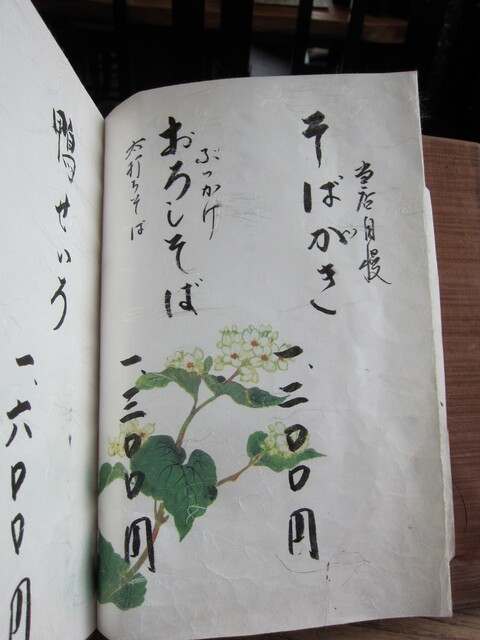 当店自慢
そばがき
一、二〇〇円
ぶっかけ
おろしそば
太打ちそば
一、三〇〇円
鴨せいろ
一、六〇〇円